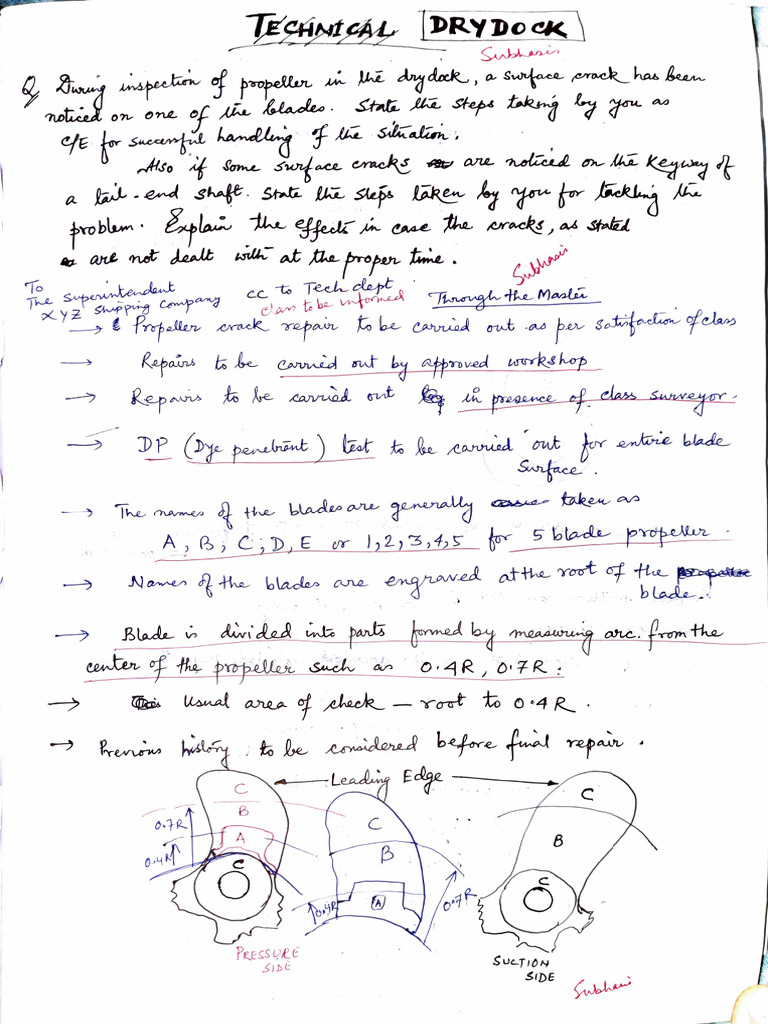 TECHNICAL DRYDOCK
Subhasis
Q, During inspection of propeller in the drydock, a surface crack has been
noticed on one of the blades. State the steps taking by you as
C/E for successful handling of the situation.
Also if some surface cracks are noticed on the keyway of
a tail-end shaft. State the steps taken by you for tackling the
problem. Explain the effects in case the cracks, as stated
are not dealt with at the proper time.
Subhasis
To
The Superintendent cc to Tech dept
XYZ Shipping Company class to be informed Through the Master
→ Propeller crack repair to be carried out as per satisfaction of class
→ Repairs to be carried out by approved workshop
→ Repairs to be carried out in presence of class surveyor.
→ DP (Dye penetrant) test to be carried out for entire blade
surface.
→ The names of the blades are generally taken as
A, B, C, D, E or 1,2,3,4,5 for 5 blade propeller.
→ Names of the blades are engraved at the root of the
blade.
→ Blade is divided into parts formed by measuring arc. from the
center of the propeller such as 0.4R, 0.7R:
→ Usual area of check — root to 0.4R.
→ Previous history to be considered before final repair.
Leading Edge
C
B
A
C
0.7R
0.4R
PRESSURE
SIDE
C
B
A
0.4R
0.7R
C
B
C
SUCTION
SIDE
Subhasis